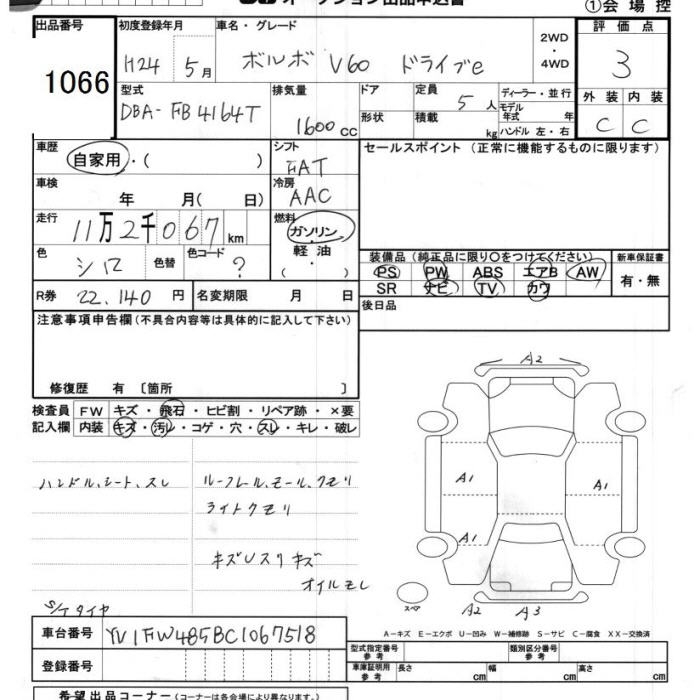 オークション出品申込書
①会場控
出品番号
1066
初度登録年月
H24 5月
車名・グレード
ボルボ V60 ドライブe
2WD
・
4WD
評価点
3
型式
DBA-FB4164T
排気量
1600cc
ドア
形状
定員
5人
積載
kg
ディーラー・並行
モデル
年式 年
ハンドル 左・右
外装 内装
C C
車歴
自家用・( )
シフト
FAT
セールスポイント (正常に機能するものに限ります)
車検
年 月( 日)
冷房
AAC
走行
11万2千067km
燃料
ガソリン
・
軽油
・
( )
色
シロ
色替
色コード
?
装備品(純正品に限り〇をつけてください)
新車保証書
PS PW ABS エアB AW
SR ナビ TV カワ
有・無
R券 22,140円
名変期限 月 日
後日品
注意事項申告欄(不具合内容等は具体的に記入して下さい)
修復歴 有 〔箇所 〕
検査員
記入欄
FW キズ・飛石・ヒビ割・リペア跡・×要
内装 キズ・汚レ・コゲ・穴・スレ・キレ・破レ
ハンドル、シート、スレ
ルーフレール、モール、クモリ
ライトクモリ
キズUスリキズ
オイルモレ
S/Tタイヤ
A2
A1
A1
A1
A2 A3
スペア
A-キズ E-エクボ U-凹み W-補修跡 S-サビ C-腐食 XX-交換済
車台番号
YV1FW485BC1067518
登録番号
型式指定番号
参考
類別区分番号
参考
車庫証明用
参考
長さ cm
幅 cm
高さ cm
希望出品コーナー(コーナーは各会場により異なります。)